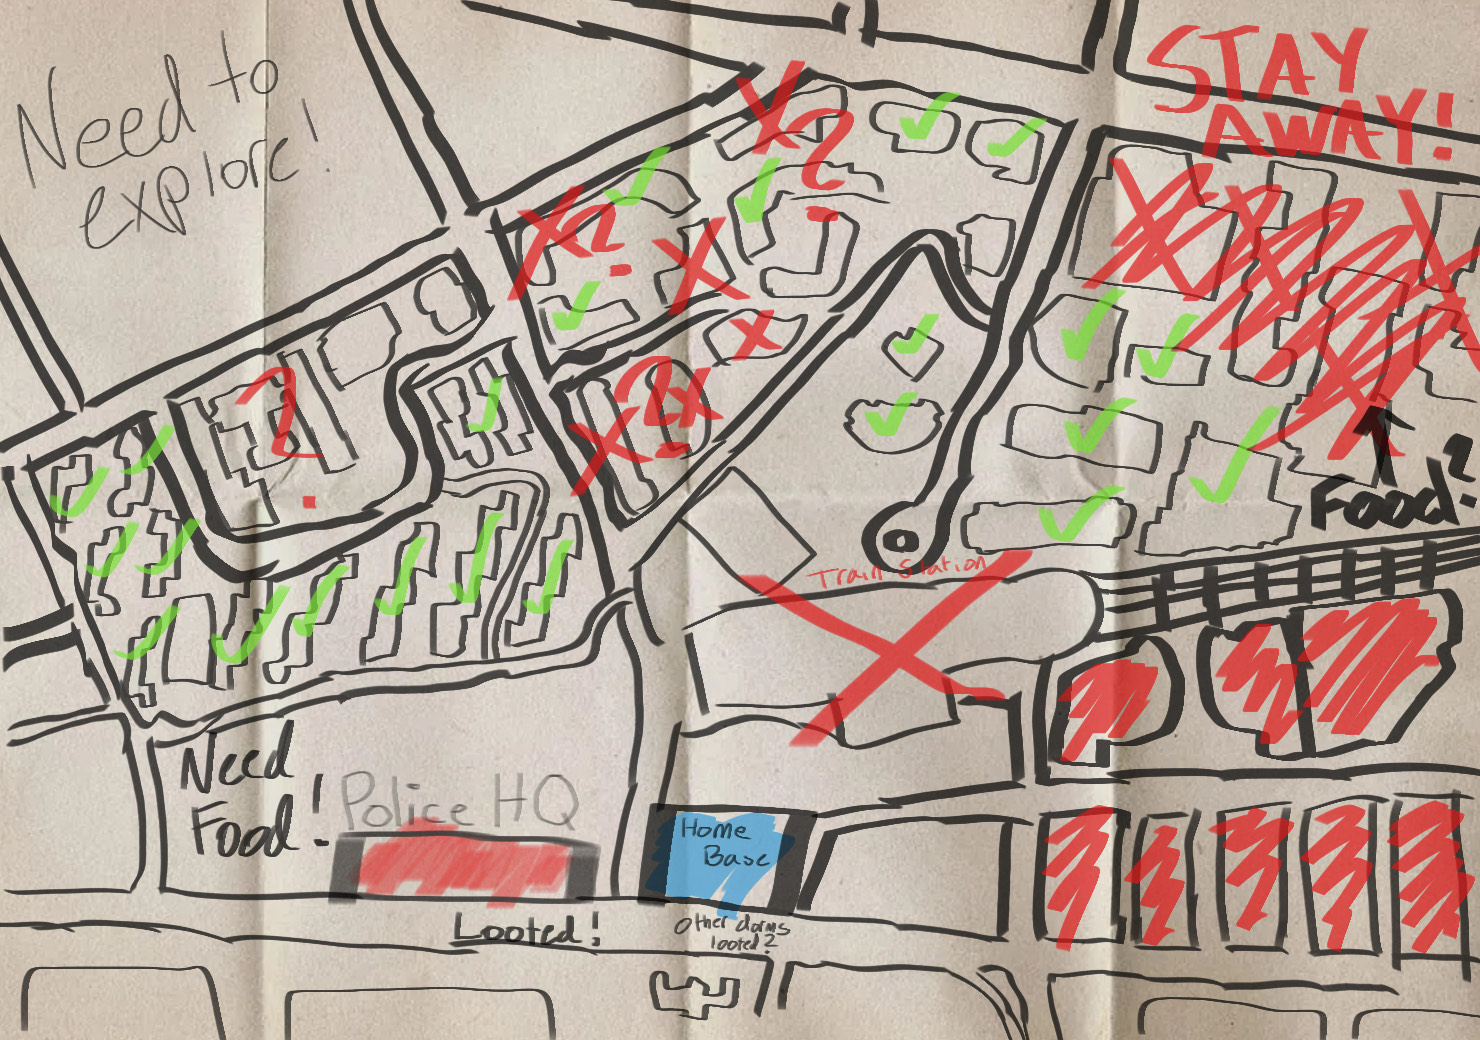 Need to
explore!
STAY
AWAY!
?
?
?
?
Food?
Train Station
Need
Food!
Police HQ
Looted!
Home
Base
Other dorms
looted?